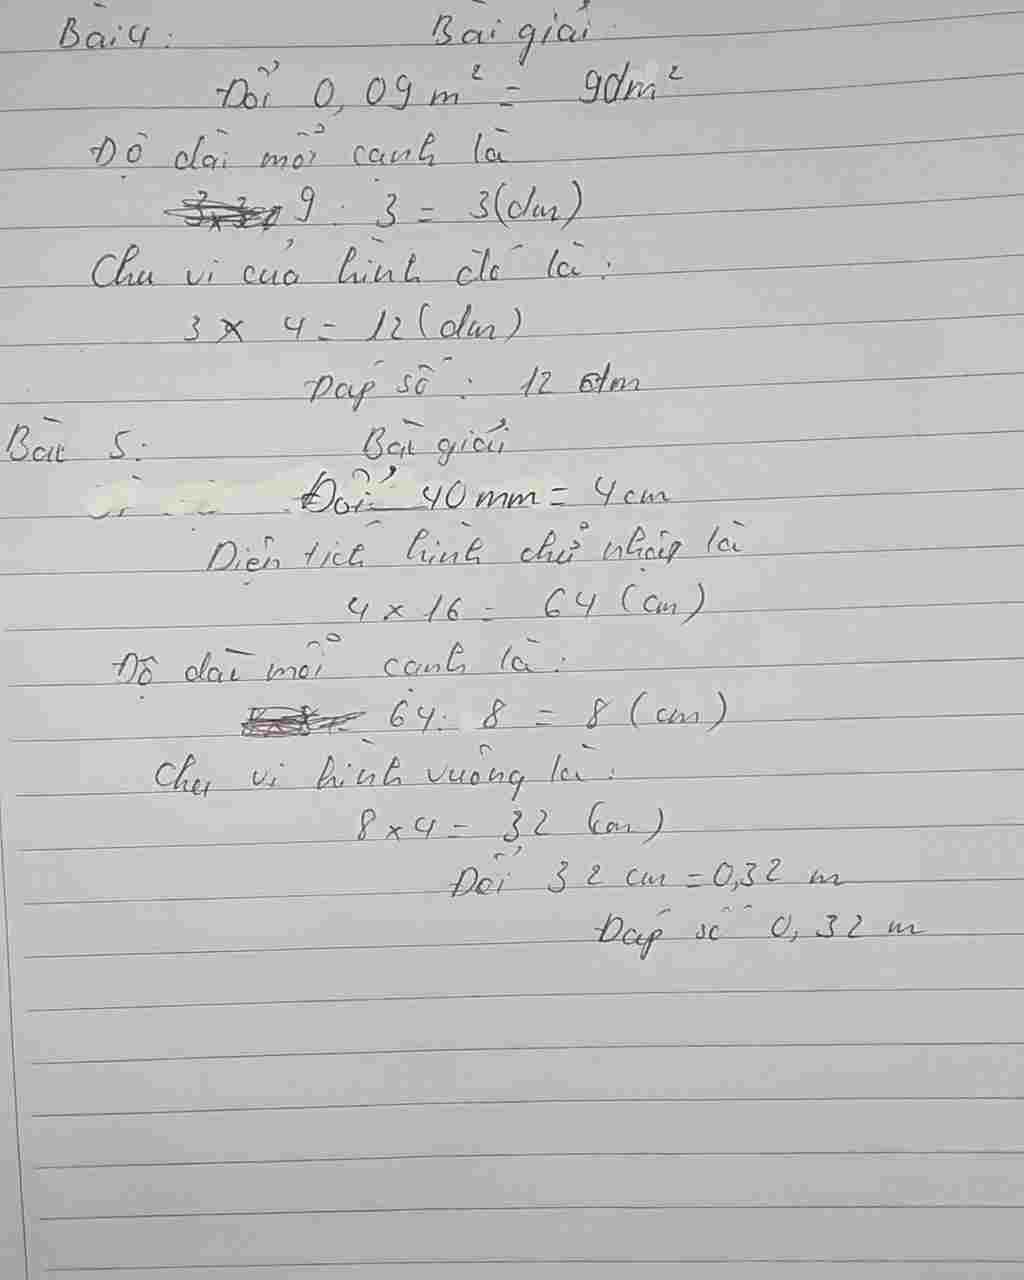 Bài 4: Bài giải
Đổi 0,09 m² = 9dm²
Độ dài mỗi cạnh là
9 : 3 = 3(dm)
Chu vi của hình đó là:
3 x 4 = 12 (dm)
Đáp số : 12 dm
Bài 5: Bài giải
Đổi 40 mm = 4 cm
Diện tích hình chữ nhật là
4 x 16 = 64 (cm)
Độ dài mỗi cạnh là:
64: 8 = 8 (cm)
Chu vi hình vuông là:
8 x 4 = 32 (cm)
Đổi 32 cm = 0,32 m
Đáp số 0,32 m